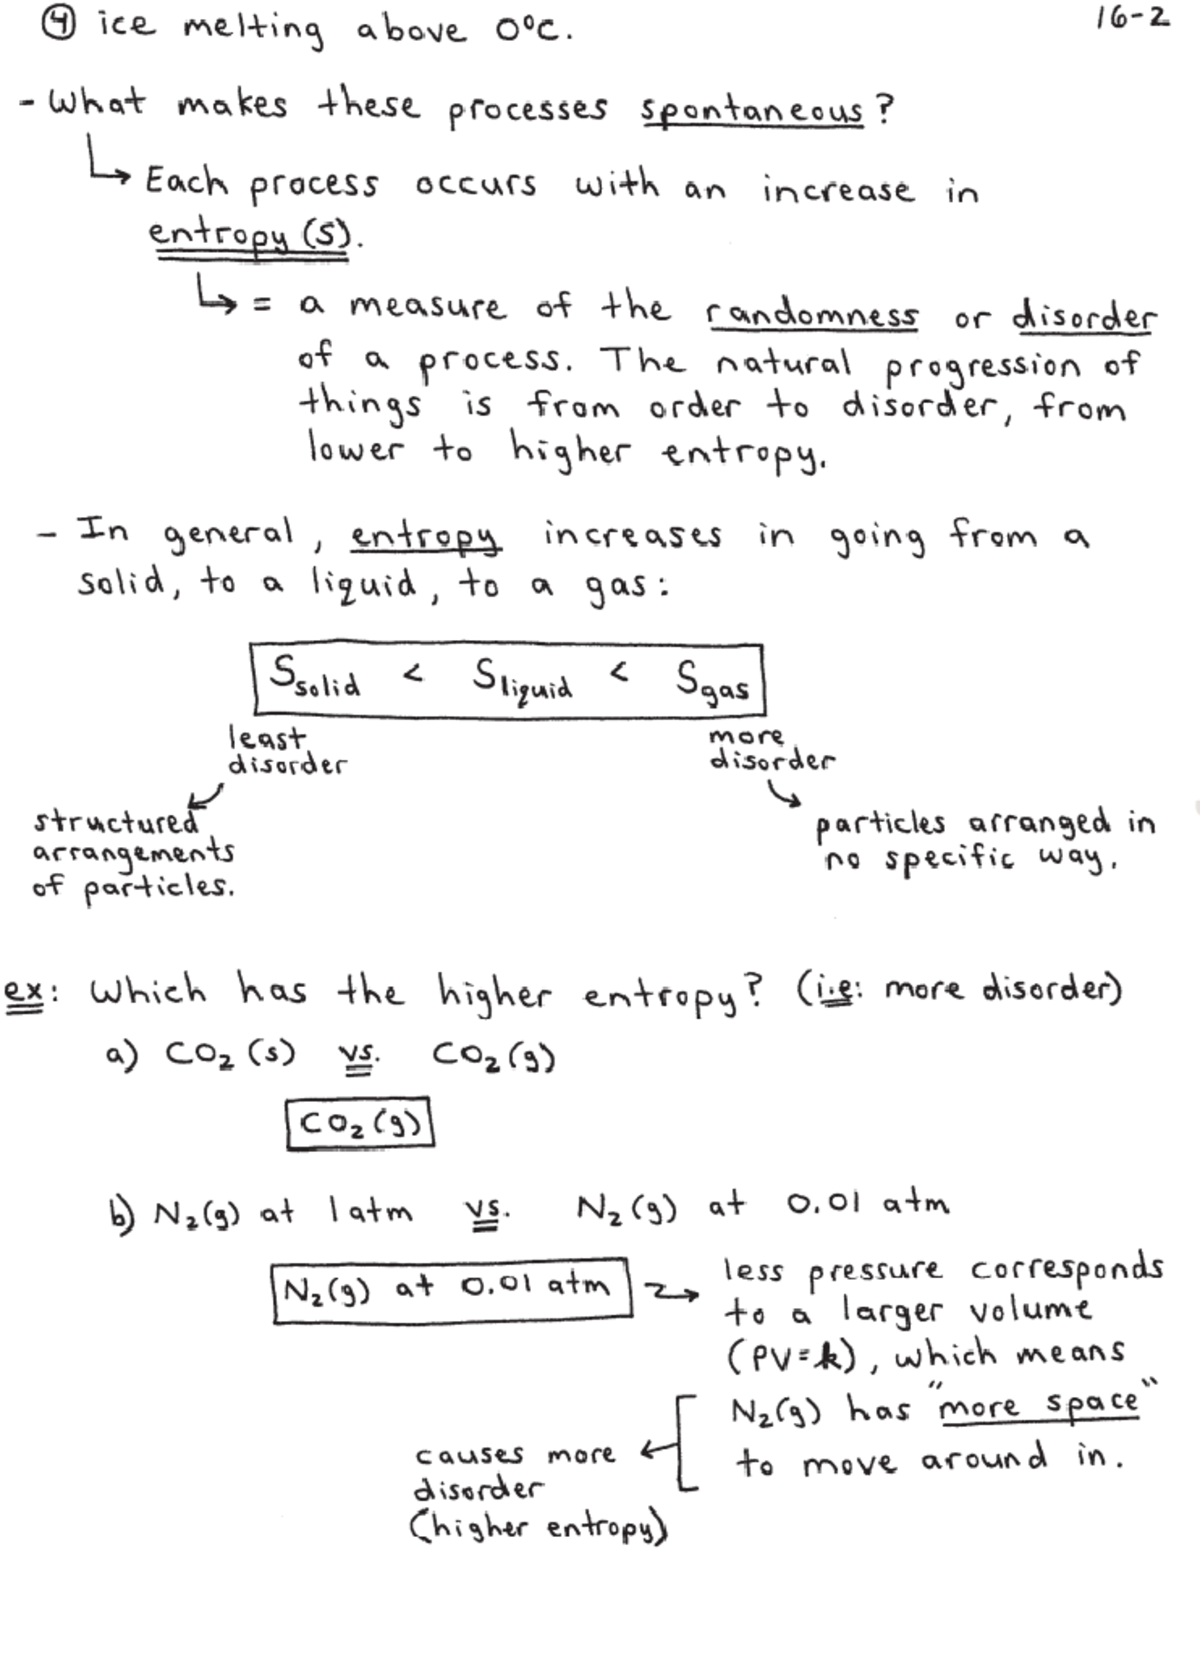 ④ ice melting above 0°C.
16-2
- What makes these processes spontaneous?
↳ Each process occurs with an increase in
entropy (S).
↳ = a measure of the randomness or disorder
of a process. The natural progression of
things is from order to disorder, from
lower to higher entropy.
- In general, entropy increases in going from a
solid, to a liquid, to a gas:
S_solid < S_liquid < S_gas
least
disorder
more
disorder
structured
arrangements
of particles.
particles arranged in
no specific way.
ex: Which has the higher entropy? (i.e: more disorder)
a) CO₂ (s) vs. CO₂ (g)
CO₂ (g)
b) N₂(g) at 1 atm vs. N₂ (g) at 0.01 atm
N₂(g) at 0.01 atm
less pressure corresponds
to a larger volume
(PV=k), which means
N₂(g) has "more space"
to move around in.
causes more
disorder
(higher entropy)